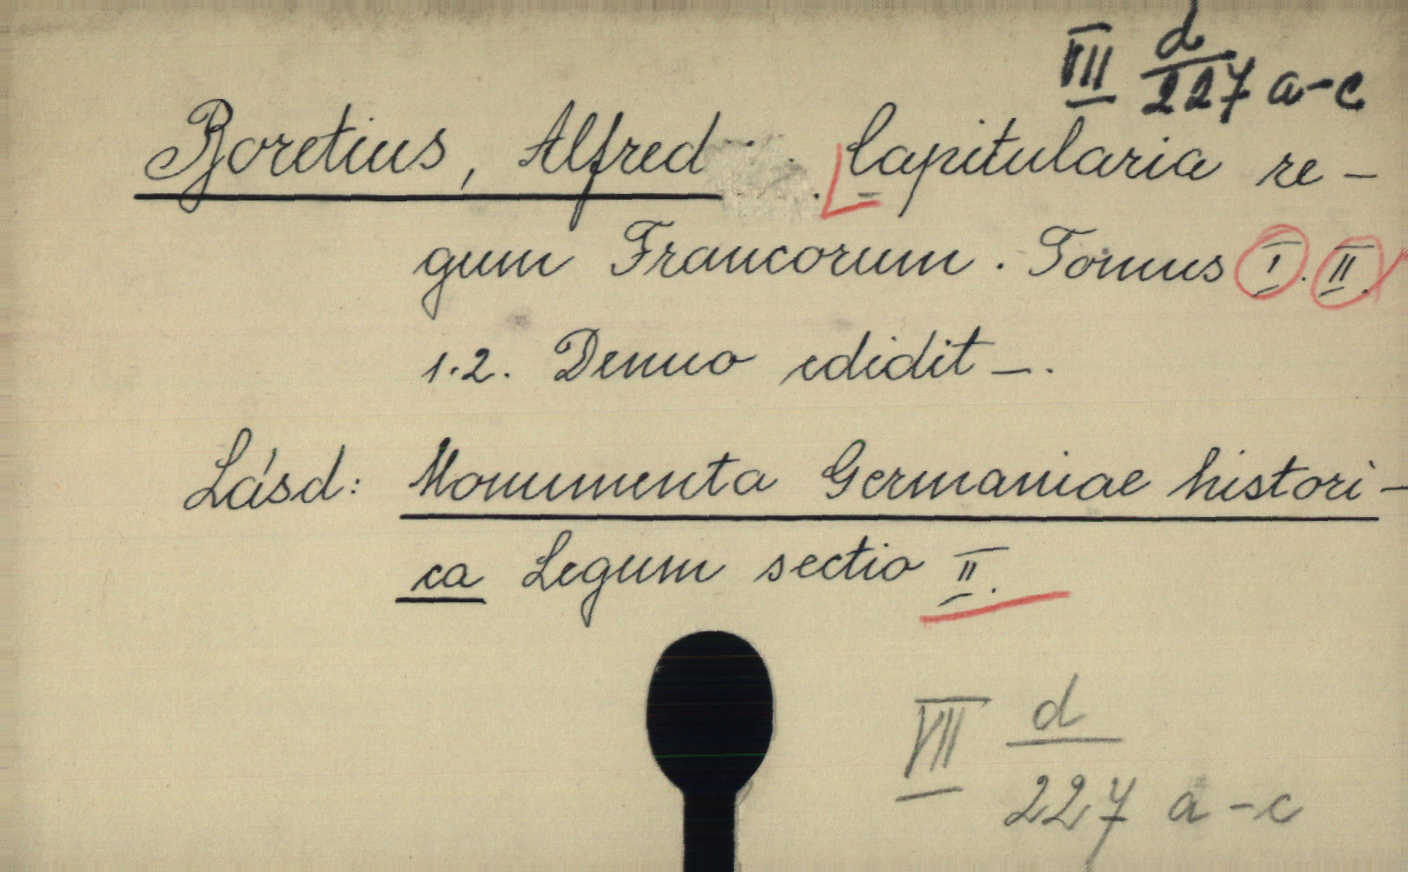 VII d/227 a-c
Boretius, Alfred . Capitularia re-
gum Francorum. Tomus I. II.
1.2. Denuo edidit —.
Lásd: Monumenta Germaniae histori-
ca Legum sectio II.
VII d/227 a-c